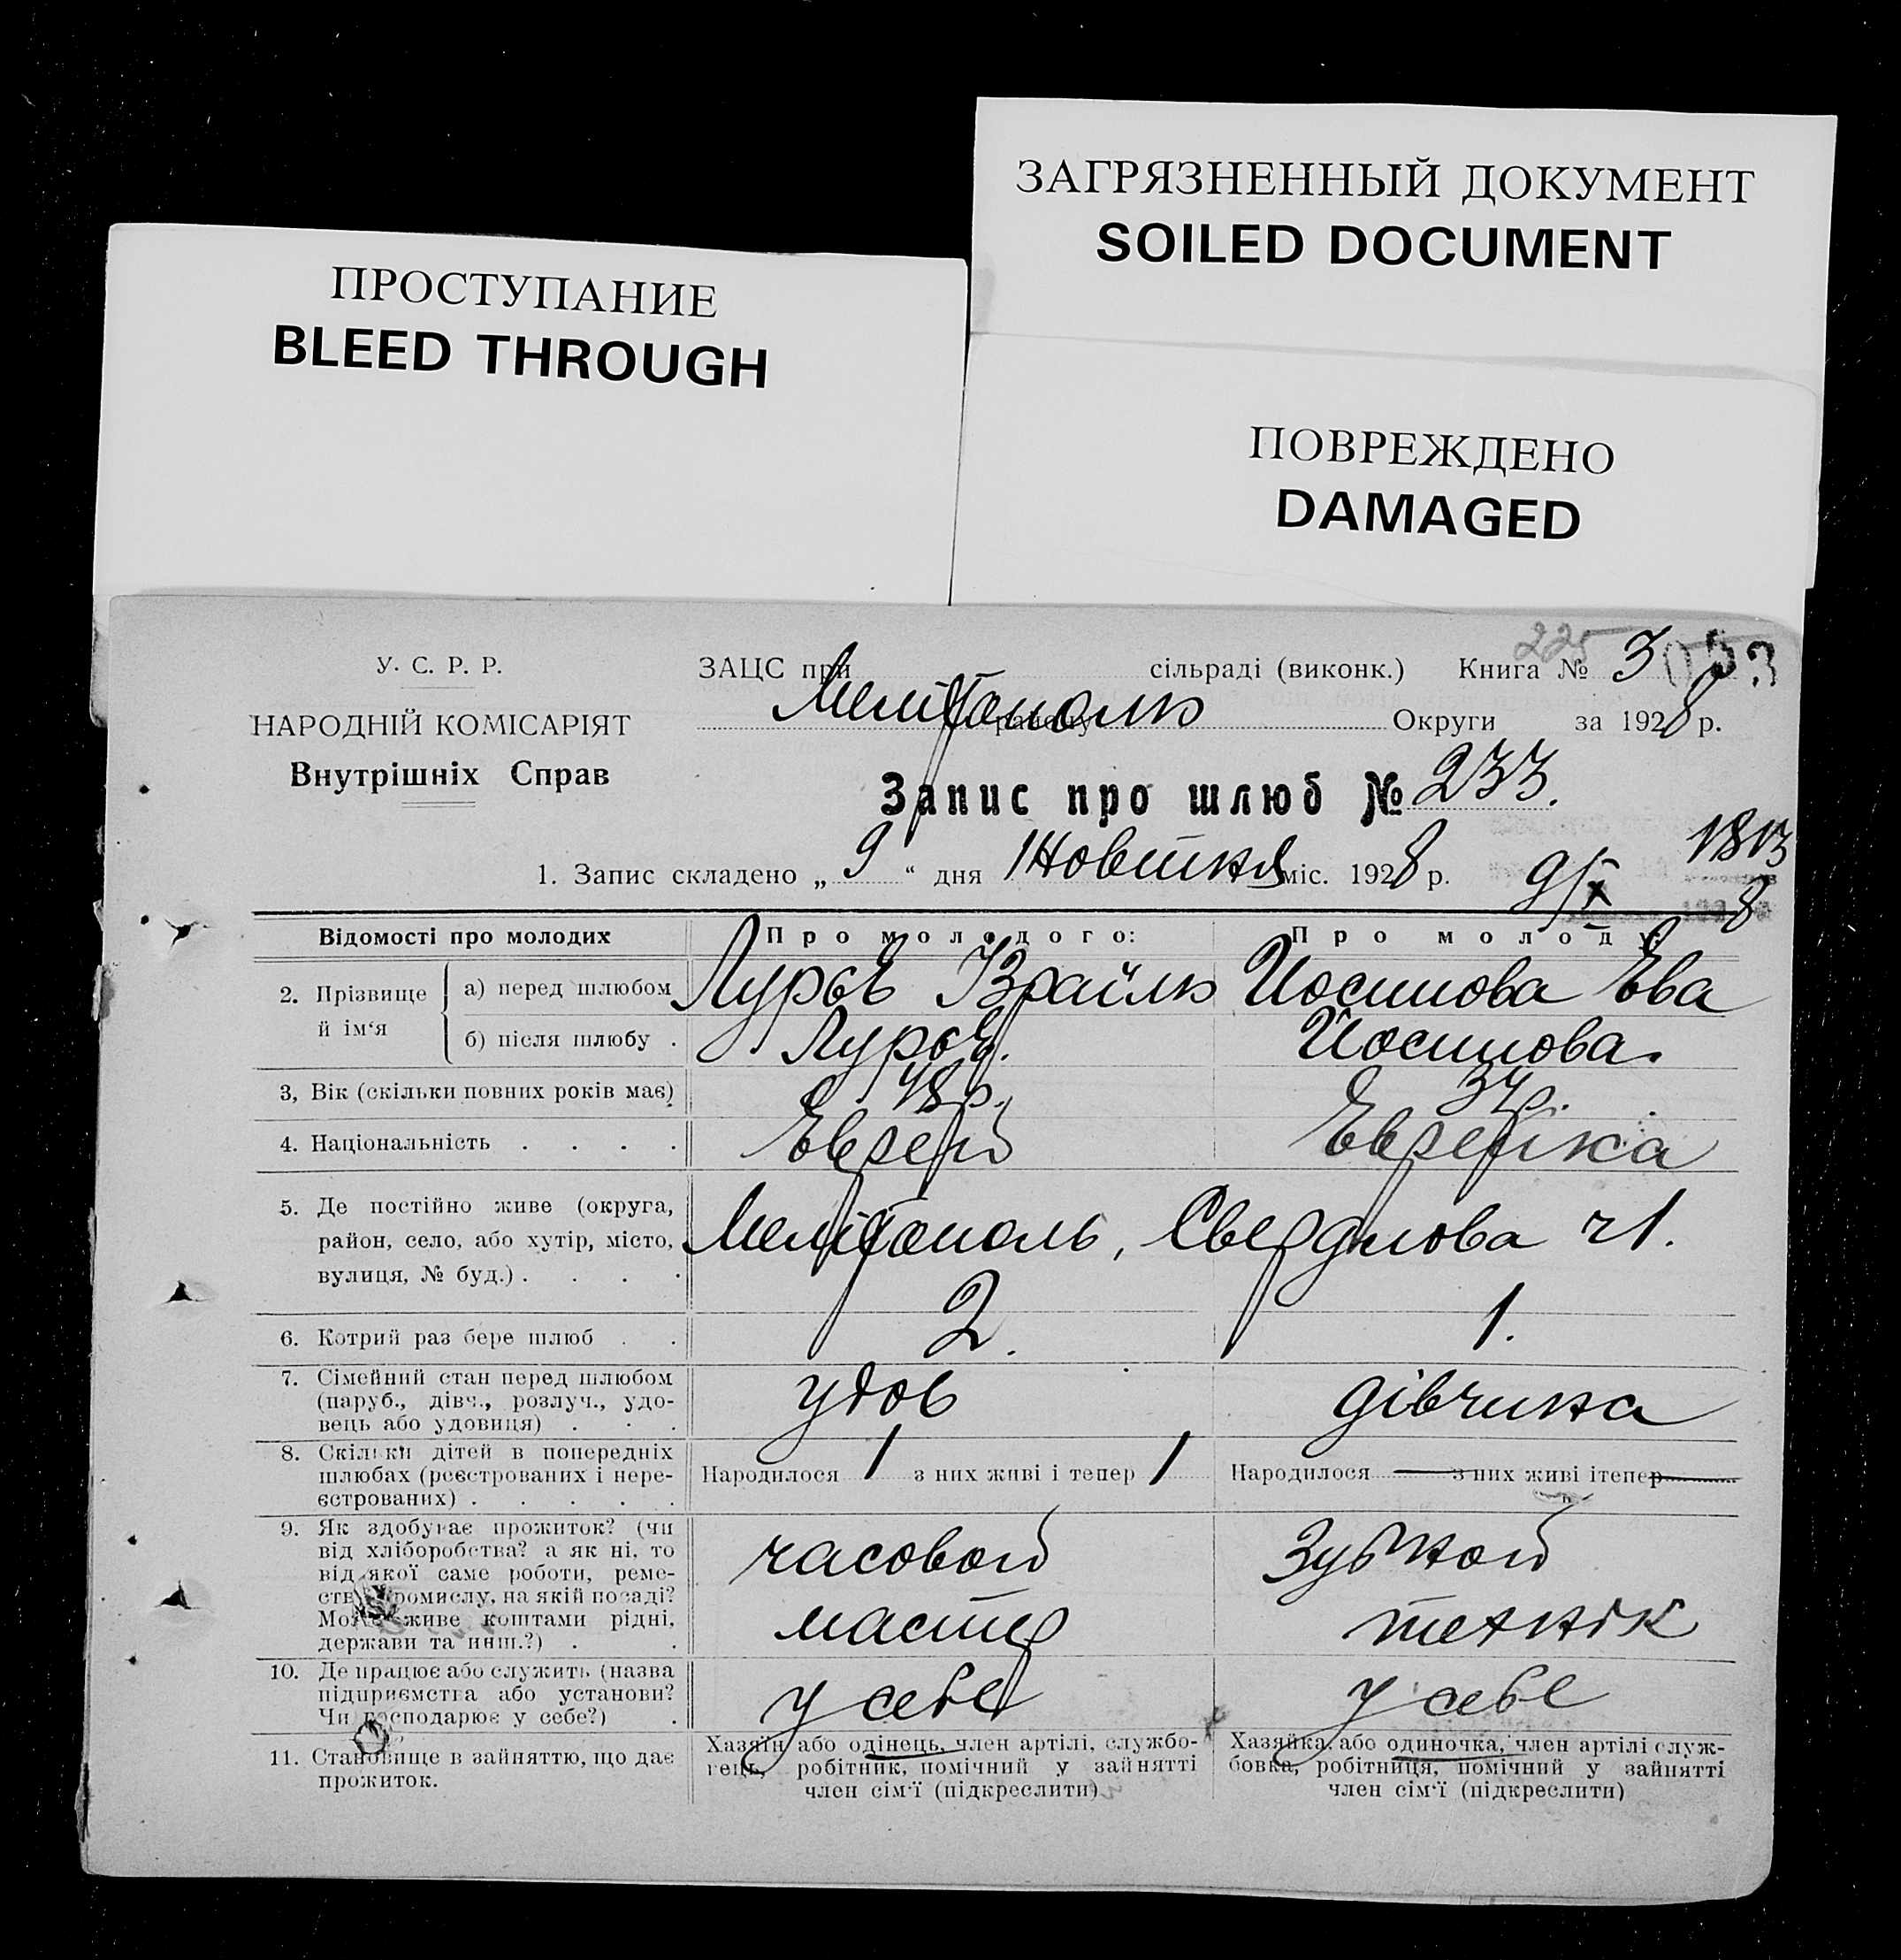 ЗАГРЯЗНЕННЫЙ ДОКУМЕНТ
SOILED DOCUMENT
ПРОСТУПАНИЕ
BLEED THROUGH
ПОВРЕЖДЕНО
DAMAGED
225
У. С. Р. Р.
ЗАЦС при сільраді (виконк.) Книга № 3
НАРОДНІЙ КОМІСАРІЯТ
Мелітополь району Округи за 1928 р.
Внутрішніх Справ
Запис про шлюб № 233.
1. Запис складено „ 9 “ дня Жовтня міс. 1928 р. 9/X 8
Відомості про молодих Про молодого: Про молоду:
2. Прізвище й імʻя а) перед шлюбом Ізраїль Йосипова Ева
б) після шлюбу . Йосипова.
3, Вік (скільки повних років має) 48 р. 34 р.
4. Національність . . . . Еврей Еврейка
5. Де постійно живе (округа,
район, село, або хутір, місто,
вулиця, № буд.) . . . . Мелітополь, Свердлова 21.
6. Котрий раз бере шлюб . . 2. 1.
7. Сімейний стан перед шлюбом
(паруб., дівч., розлуч., удо-
вець або удовиця) . . . удов дівчина
8. Скільки дітей в попередніх
шлюбах (реєстрованих і нере-
єстрованих) . . . . . Народилося 1 з них живі і тепер 1 Народилося — з них живі ітепер —
9. Як здобуває прожиток? (чи
від хліборобства? а як ні, то
від якої саме роботи, реме-
ств промислу, на якій посаді?
Мо живе коштами рідні,
держави та инш.?) . .
часовой Зубной
мастер технік
10. Де працює або служить (назва
підприємства або установи?
Чи господарює у себе?) . у себе у себе
11. Становище в зайняттю, що дає
прожиток.
Хазяїн або одінець, член артілі, службо-
вець, робітник, помічний у зайнятті
член сімʻї (підкреслити)
Хазяйка або одиночка, член артілі служ-
бовка, робітниця, помічний у зайнятті
член сімʻї (підкреслити)